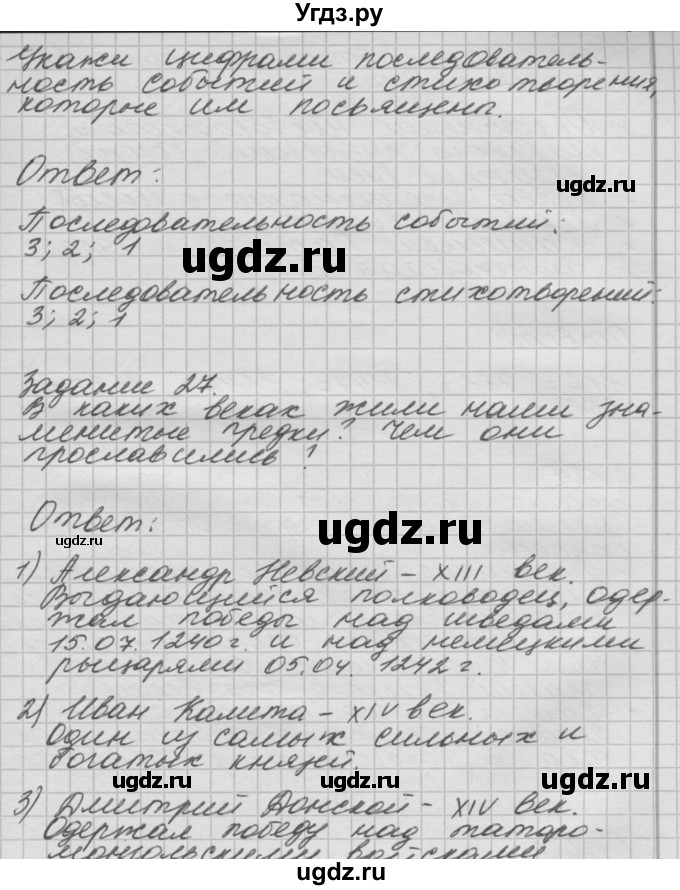 Угдз.ру
Укажи цифрами последователь-
ность событий и стихотворения,
которые им посвящены.
Ответ:
ugdz.ru
Последовательность событий:
3; 2; 1
ugdz.ru
Последовательность стихотворений:
3; 2; 1
Задание 27.
В каких веках жили наши зна-
менитые предки? Чем они
прославились?
Ответ:
ugdz.ru
ugdz.ru
1) Александр Невский – XIII век.
Выдающийся полководец, одер-
жал победы над шведами
15.07.1240 г. и над немецкими
рыцарями 05.04. 1242 г.
2) Иван Калита – XIV век.
Один из самых сильных и
богатых князей.
ugdz.ru
ugdz.ru
3) Дмитрий Донской – XIV век.
Одержал победу над татаро-
монгольскими войсками
ugdz.ru